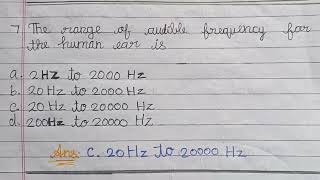 7 The range of audible frequency for
the human ear is
a. 2Hz to 2000 Hz
b. 20 Hz to 2000 Hz
c. 20 Hz to 20000 Hz
d. 200Hz to 20000 Hz
Ans: C. 20 Hz to 20000 Hz